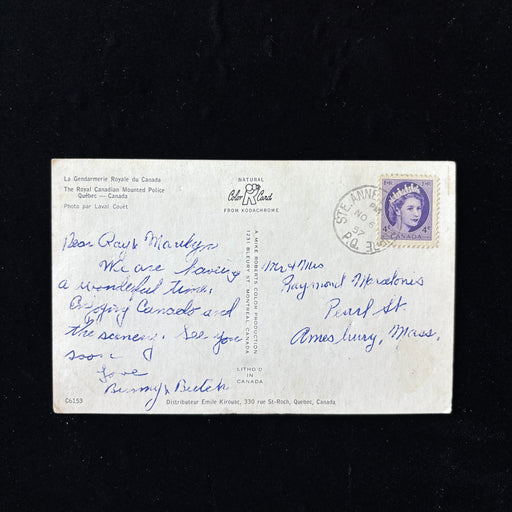 La Gendarmerie Royale du Canada
The Royal Canadian Mounted Police
Québec — Canada
Photo par Laval Couët
NATURAL
Color Card
FROM KODACHROME
Dear Ray & Marilyn
We are having
a wonderful time.
Enjoying Canada and
the scenery. See you
soon
Love
Bunny & Butch
A MIKE ROBERTS COLOR PRODUCTION
1231 BLEURY ST. MONTREAL, CANADA
LITHO'D
IN
CANADA
STE. ANNE
PM
NO 6
57
P.Q.
4¢ CANADA 4¢
Mr & Mrs
Raymond
Pearl St.
Amesbury, Mass.
C6153
Distributeur Emile Kirouac, 330 rue St-Roch, Quebec, Canada